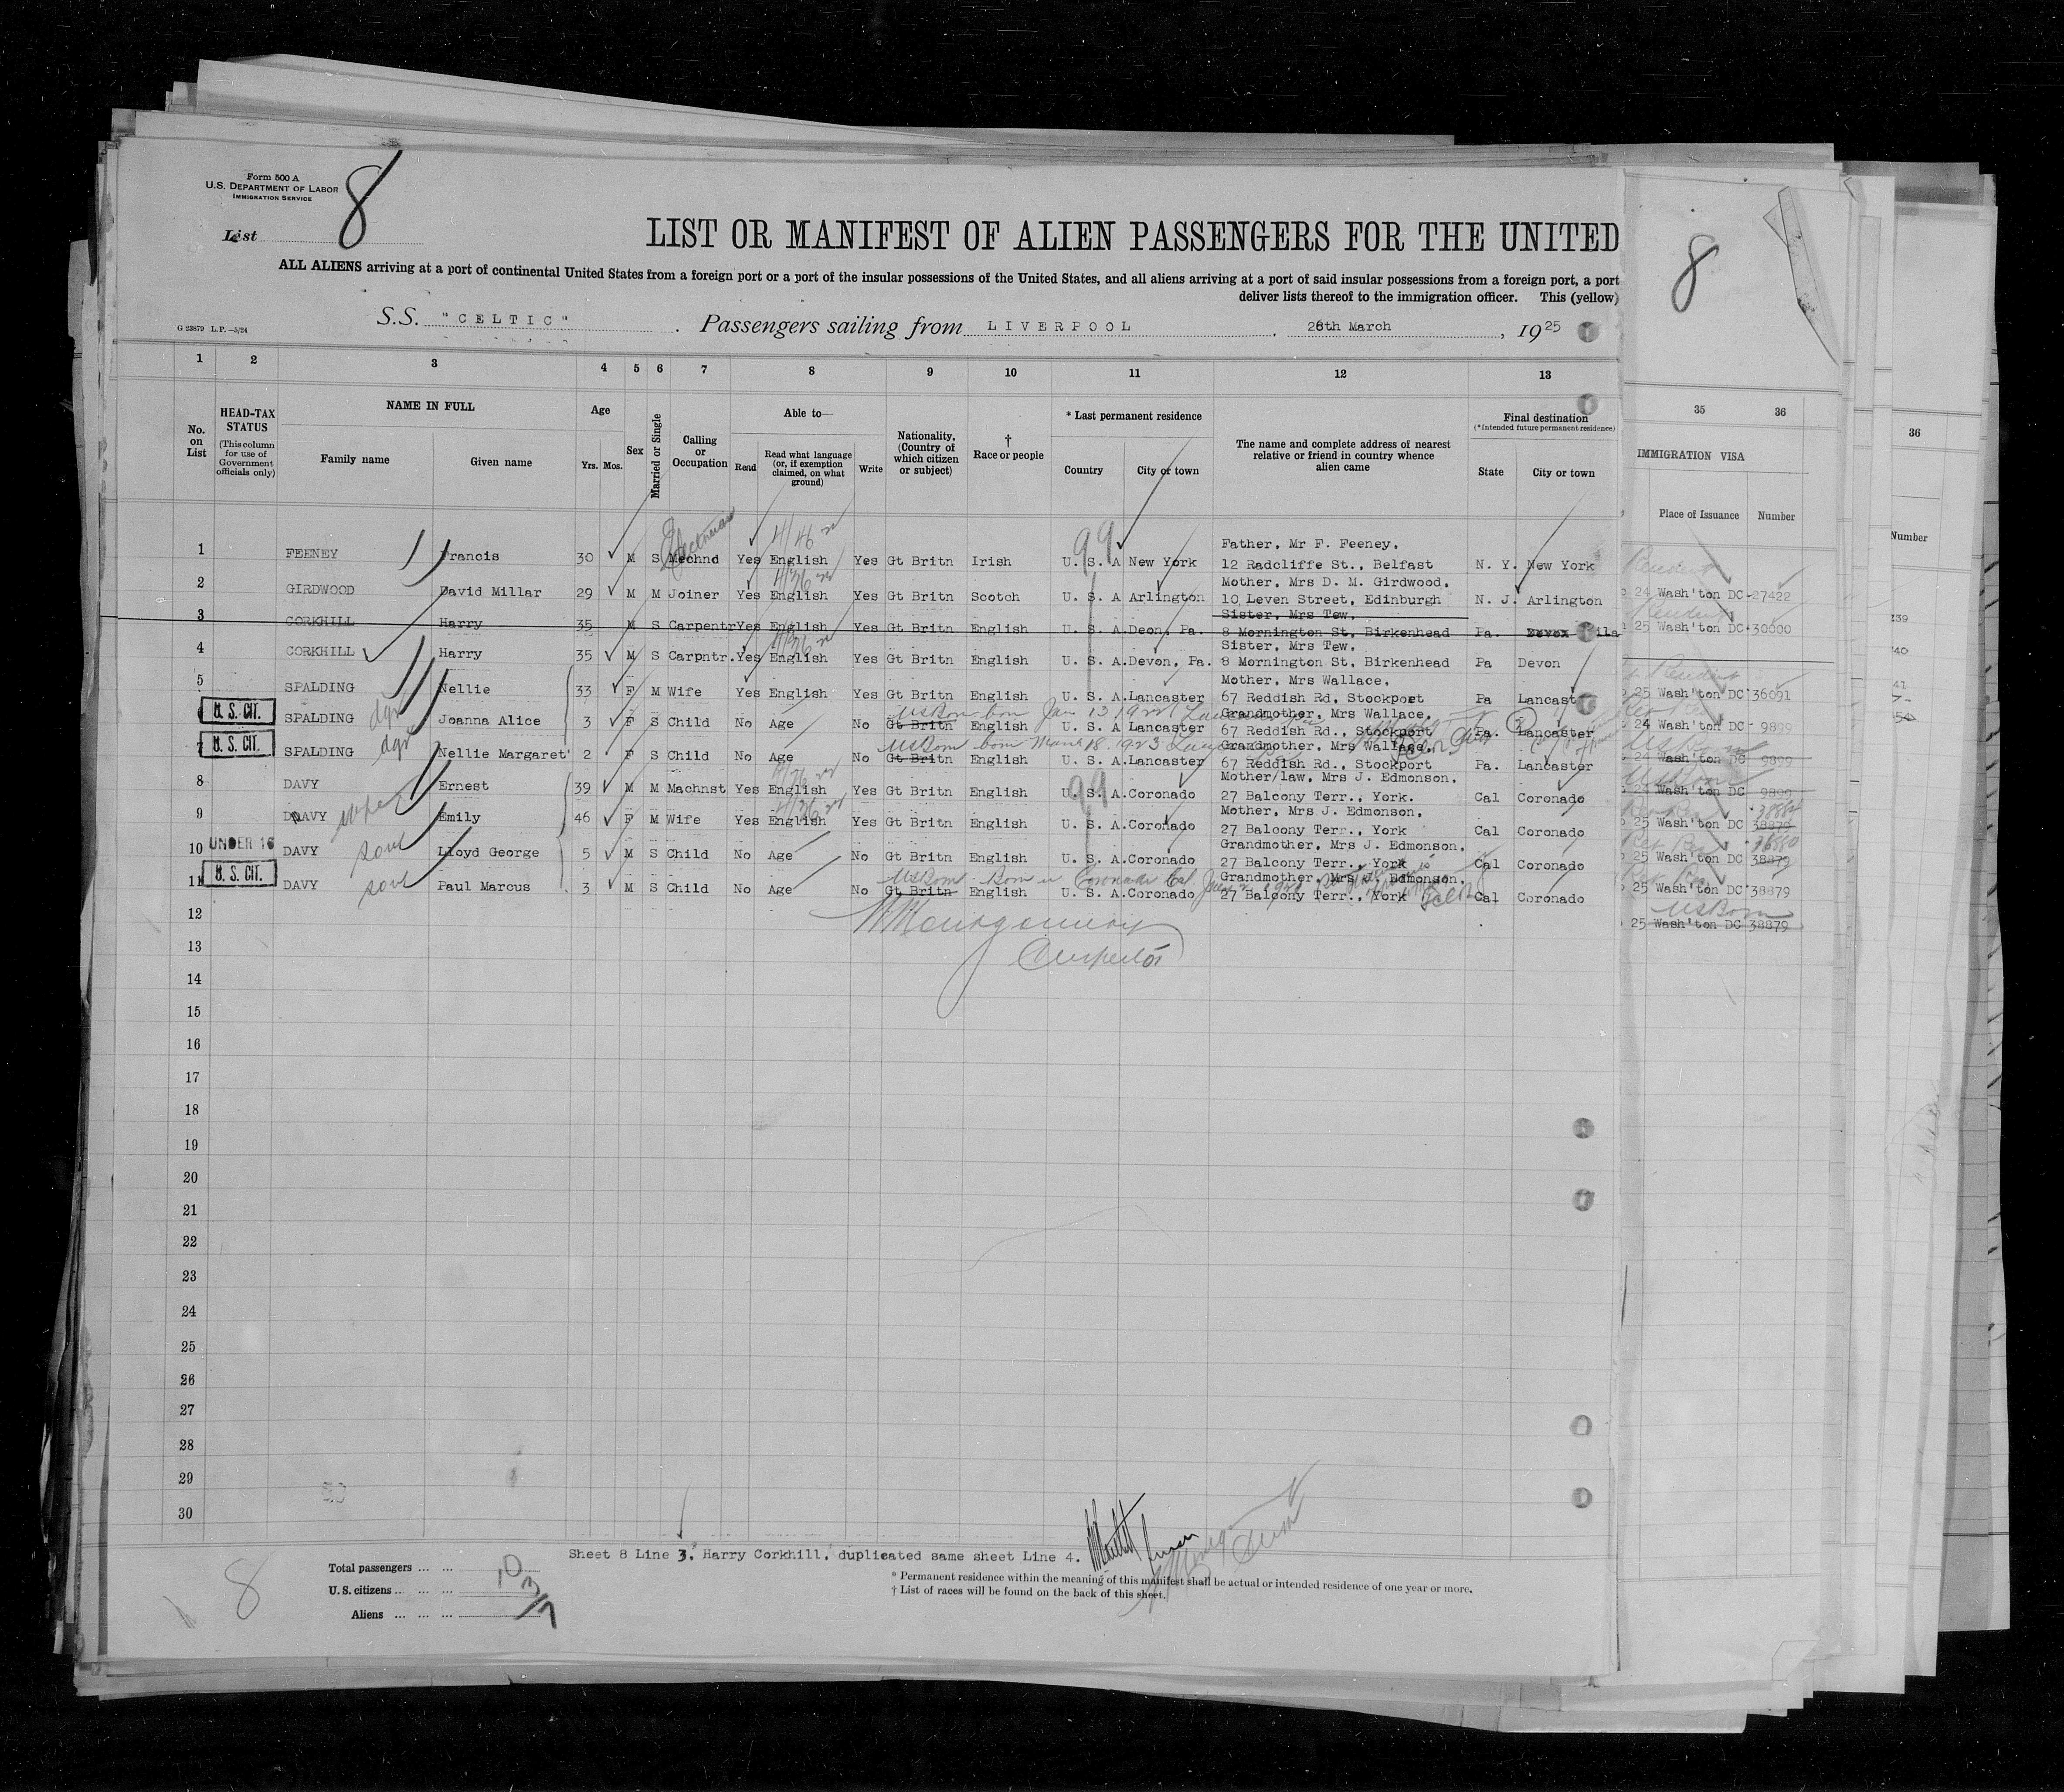 Form 500 A
U.S. DEPARTMENT OF LABOR
IMMIGRATION SERVICE
List 8
LIST OR MANIFEST OF ALIEN PASSENGERS FOR THE UNITED
ALL ALIENS arriving at a port of continental United States from a foreign port or a port of the insular possessions of the United States, and all aliens arriving at a port of said insular possessions from a foreign port, a port
deliver lists thereof to the immigration officer. This (yellow)
G 23879 L.P.—5/24
S.S. "CELTIC" . Passengers sailing from LIVERPOOL , 26th March , 1925
8
1 2 3 4 5 6 7 8 9 10 11 12 13
35 36
36
No. on List
HEAD-TAX STATUS
(This column for use of Government officials only)
NAME IN FULL
Family name Given name
Age
Yrs. Mos.
Sex
Married or Single
Calling or Occupation
Able to—
Read
Read what language (or, if exemption claimed, on what ground)
Write
Nationality. (Country of which citizen or subject)
† Race or people
* Last permanent residence
Country City or town
The name and complete address of nearest relative or friend in country whence alien came
Final destination
(*Intended future permanent residence)
State City or town
IMMIGRATION VISA
Place of Issuance Number
Number
1 FEENEY Francis 30 M S Mechnc Yes English Yes Gt Britn Irish U. S. A New York Father, Mr F. Feeney, 12 Radcliffe St., Belfast N. Y. New York
2 GIRDWOOD David Millar 29 M M Joiner Yes English Yes Gt Britn Scotch U. S. A Arlington Mother, Mrs D. M. Girdwood, 10 Leven Street, Edinburgh N. J. Arlington
3 CORKHILL Harry 35 M S Carpentr Yes English Yes Gt Britn English U. S. A. Deon, Pa. Sister, Mrs Tew, 8 Mornington St, Birkenhead Pa.
4 CORKHILL Harry 35 M S Carpntr. Yes English Yes Gt Britn English U. S. A. Devon, Pa. Sister, Mrs Tew, 8 Mornington St, Birkenhead Pa Devon
5 SPALDING Nellie 33 F M Wife Yes English Yes Gt Britn English U. S. A. Lancaster Mother, Mrs Wallace, 67 Reddish Rd, Stockport Pa Lancast
U. S. CIT. SPALDING dgr Joanna Alice 3 F S Child No Age No Gt Britn English U. S. A Lancaster Grandmother, Mrs Wallace, 67 Reddish Rd., Stockport Pa. Lancaster
USBorn born Jan 13 1922
7 U. S. CIT. SPALDING dgr Nellie Margaret 2 F S Child No Age No Gt Britn English U. S. A. Lancaster Grandmother, Mrs Wallace, 67 Reddish Rd., Stockport Pa. Lancaster
USBorn born 18 1923
8 DAVY Ernest 39 M M Machnst Yes English Yes Gt Britn English U. S. A. Coronado Mother/law, Mrs J. Edmonson, 27 Balcony Terr., York. Cal Coronado
9 DAVY wife Emily 46 F M Wife Yes English Yes Gt Britn English U. S. A. Coronado Mother, Mrs J. Edmonson, 27 Balcony Terr., York Cal Coronado
10 UNDER 16 DAVY son Lloyd George 5 M S Child No Age No Gt Britn English U. S. A. Coronado Grandmother, Mrs J. Edmonson, 27 Balcony Terr., York Cal Coronado
11 U. S. CIT. DAVY son Paul Marcus 3 M S Child No Age No Gt Britn English U. S. A. Coronado Grandmother, Mrs J. Edmonson, 27 Balcony Terr., York Cal Coronado
USBorn Born in Coronado Cal
24 Wash'ton DC 27422
25 Wash'ton DC 30000
25 Wash'ton DC 36091
24 Wash'ton DC 9899
24 Wash'ton DC 9899
24 Wash'ton DC 9899
25 Wash'ton DC 38879
25 Wash'ton DC 38879
25 Wash'ton DC 38879
USBorn
25 Wash'ton DC 38879
Montgomery
Inspector
12
13
14
15
16
17
18
19
20
21
22
23
24
25
26
27
28
29
30
Sheet 8 Line 3, Harry Corkhill, duplicated same sheet Line 4.
8
Total passengers ... ... 10
U. S. citizens ... ... ... 3
Aliens ... ... ... 7
* Permanent residence within the meaning of this manifest shall be actual or intended residence of one year or more.
† List of races will be found on the back of this sheet.